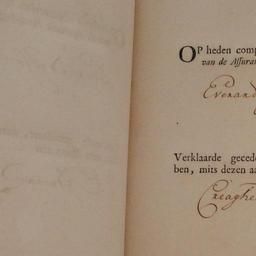 OP heden comp
van de Assuran
Evenand
Verklaarde gecede
ben, mits dezen aa
Creaghe